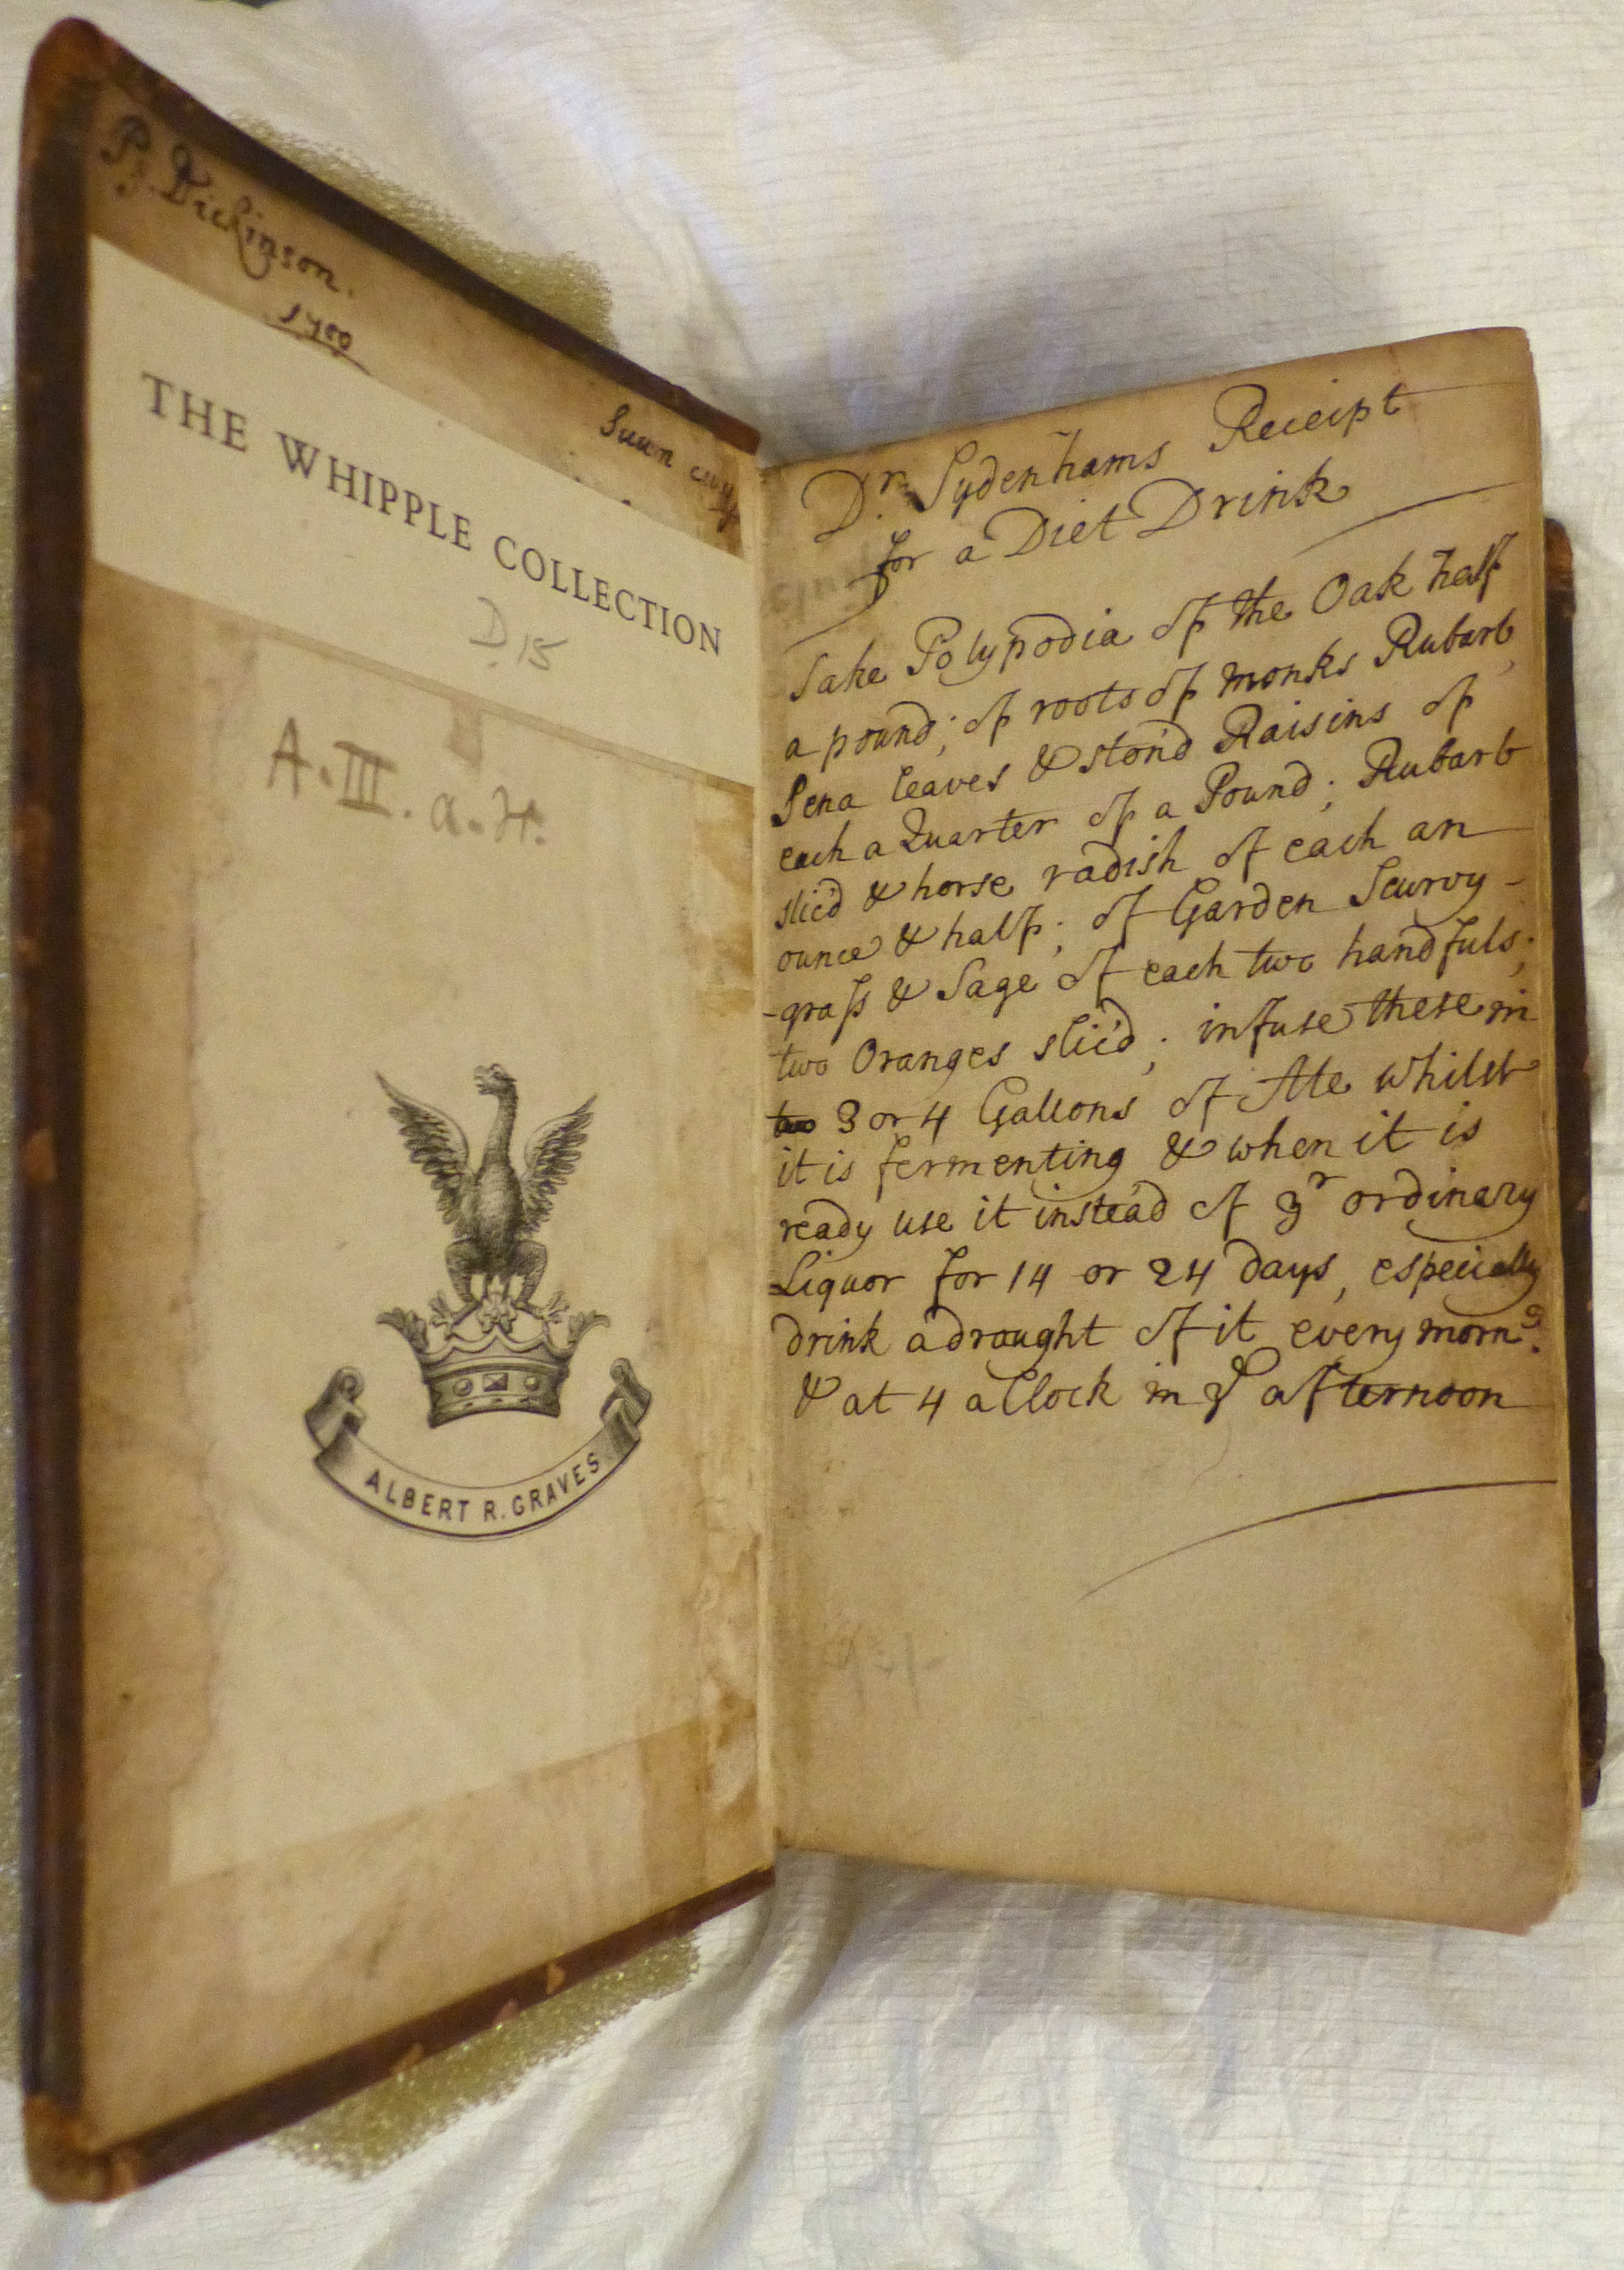 P: Dickinson.
1700
THE WHIPPLE COLLECTION
D.15
A.III.a.H.
ALBERT R. GRAVES
Dr. Sydenhams Receipt
for a Diet Drink
Take Polypodia of the Oak half
a pound; of roots of monks Rubarb,
Sena leaves & ston'd Raisins of
each a Quarter of a Pound; Rubarb
slic'd & horse radish of each an
ounce & half; of Garden Scurvy-
-grass & Sage of each two handfuls;
two Oranges slic'd; infuse these in
two 3 or 4 Gallons of Ale whilst
it is fermenting & when it is
ready use it instead of yr ordinary
Liquor for 14 or 24 days, especially
drink a draught of it every morng.
& at 4 a Clock in ye afternoon